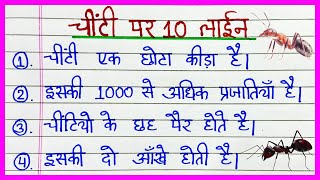 चींटी पर 10 लाईन
1. चींटी एक छोटा कीड़ा है।
2. इसकी 1000 से अधिक प्रजातियाँ है।
3. चींटियो के छह पैर होते है।
4. इसकी दो आँखे होती है।